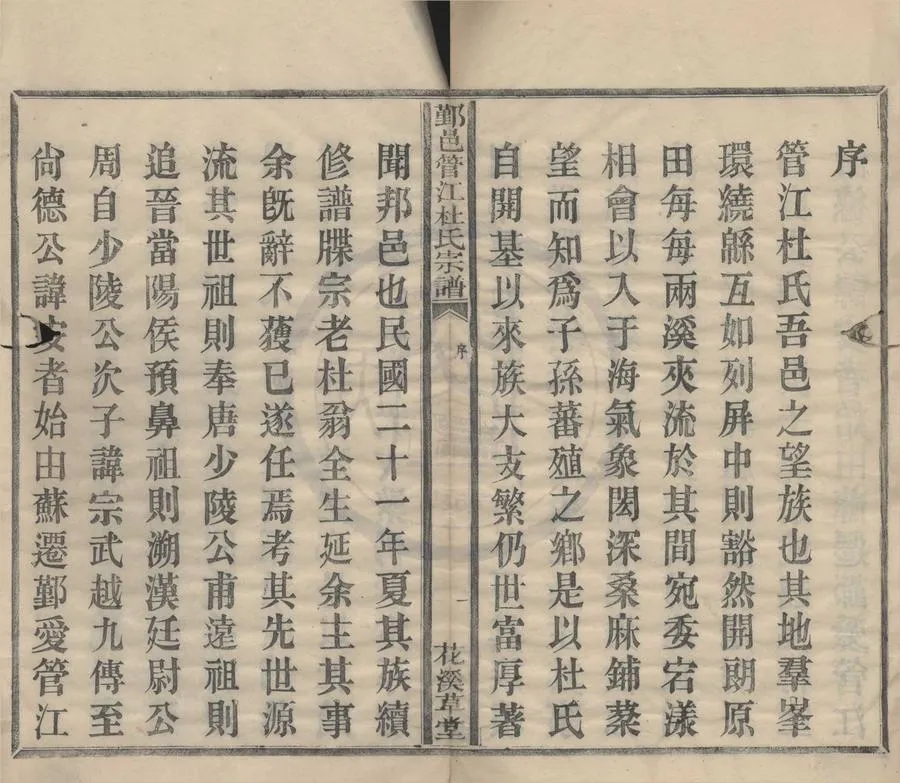 序
管江杜氏吾邑之望族也其地羣峯
環繞緜亙如列屏中則豁然開朗原
田每每兩溪夾流於其間宛委宕漾
相會以入于海氣象閎深桑麻鋪棻
望而知爲子孫蕃殖之鄉是以杜氏
自開基以來族大支繁仍世富厚著
鄞邑管江杜氏宗譜
序
一
花溪草堂
聞邦邑也民國二十一年夏其族續
修譜牒宗老杜翁全生延余主其事
余旣辭不獲已遂任焉考其先世源
流其世祖則奉唐少陵公甫遠祖則
追晉當陽侯預鼻祖則溯漢廷尉公
周自少陵公次子諱宗武越九傳至
尙德公諱安者始由蘇遷鄞愛管江